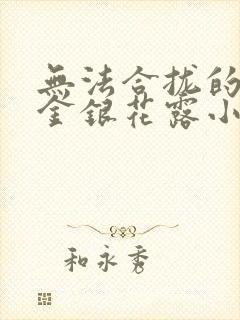 無法合拢的
金銀花露小
和永秀